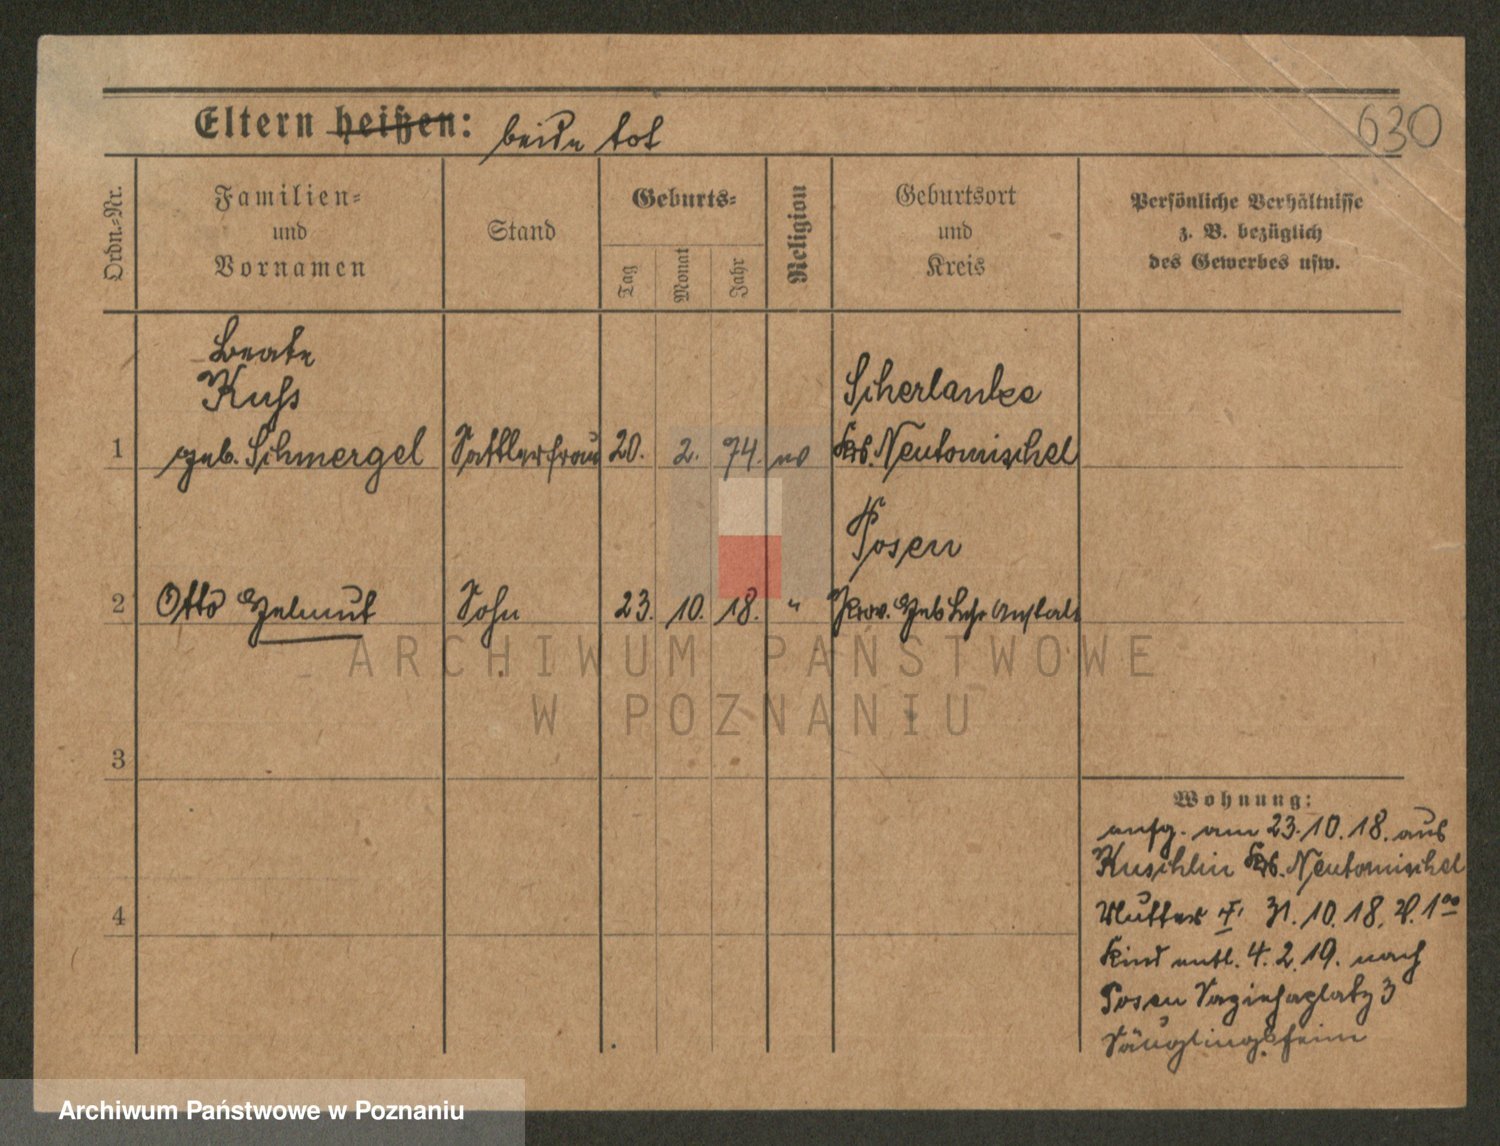 630
Eltern heißen: beide tot
Ordn.-Nr.
Familien-
und
Vornamen
Stand
Geburts-
Tag
Monat
Jahr
Religion
Geburtsort
und
Kreis
Persönliche Verhältnisse
z. B. bezüglich
des Gewerbes usw.
Beate
Kuss
geb. Schmergel
Scherlanke
1
Sattlerfrau
20. 2. 74. ev
Krs. Neutomischel
Posen
2 Otto Helmut Sohn 23. 10. 18. " Prov. Heb Lehr Anstalt
ARCHIWUM PAŃSTWOWE
W POZNANIU
3
4
Wohnung:
aufg. am 23.10.18. aus
Kuschlin Krs. Neutomischel
Mutter † 31.10.18. V. 1°°
Kind entl. 4.2.19. nach
Posen Sapiehaplatz 3
Säuglingsheim
Archiwum Państwowe w Poznaniu